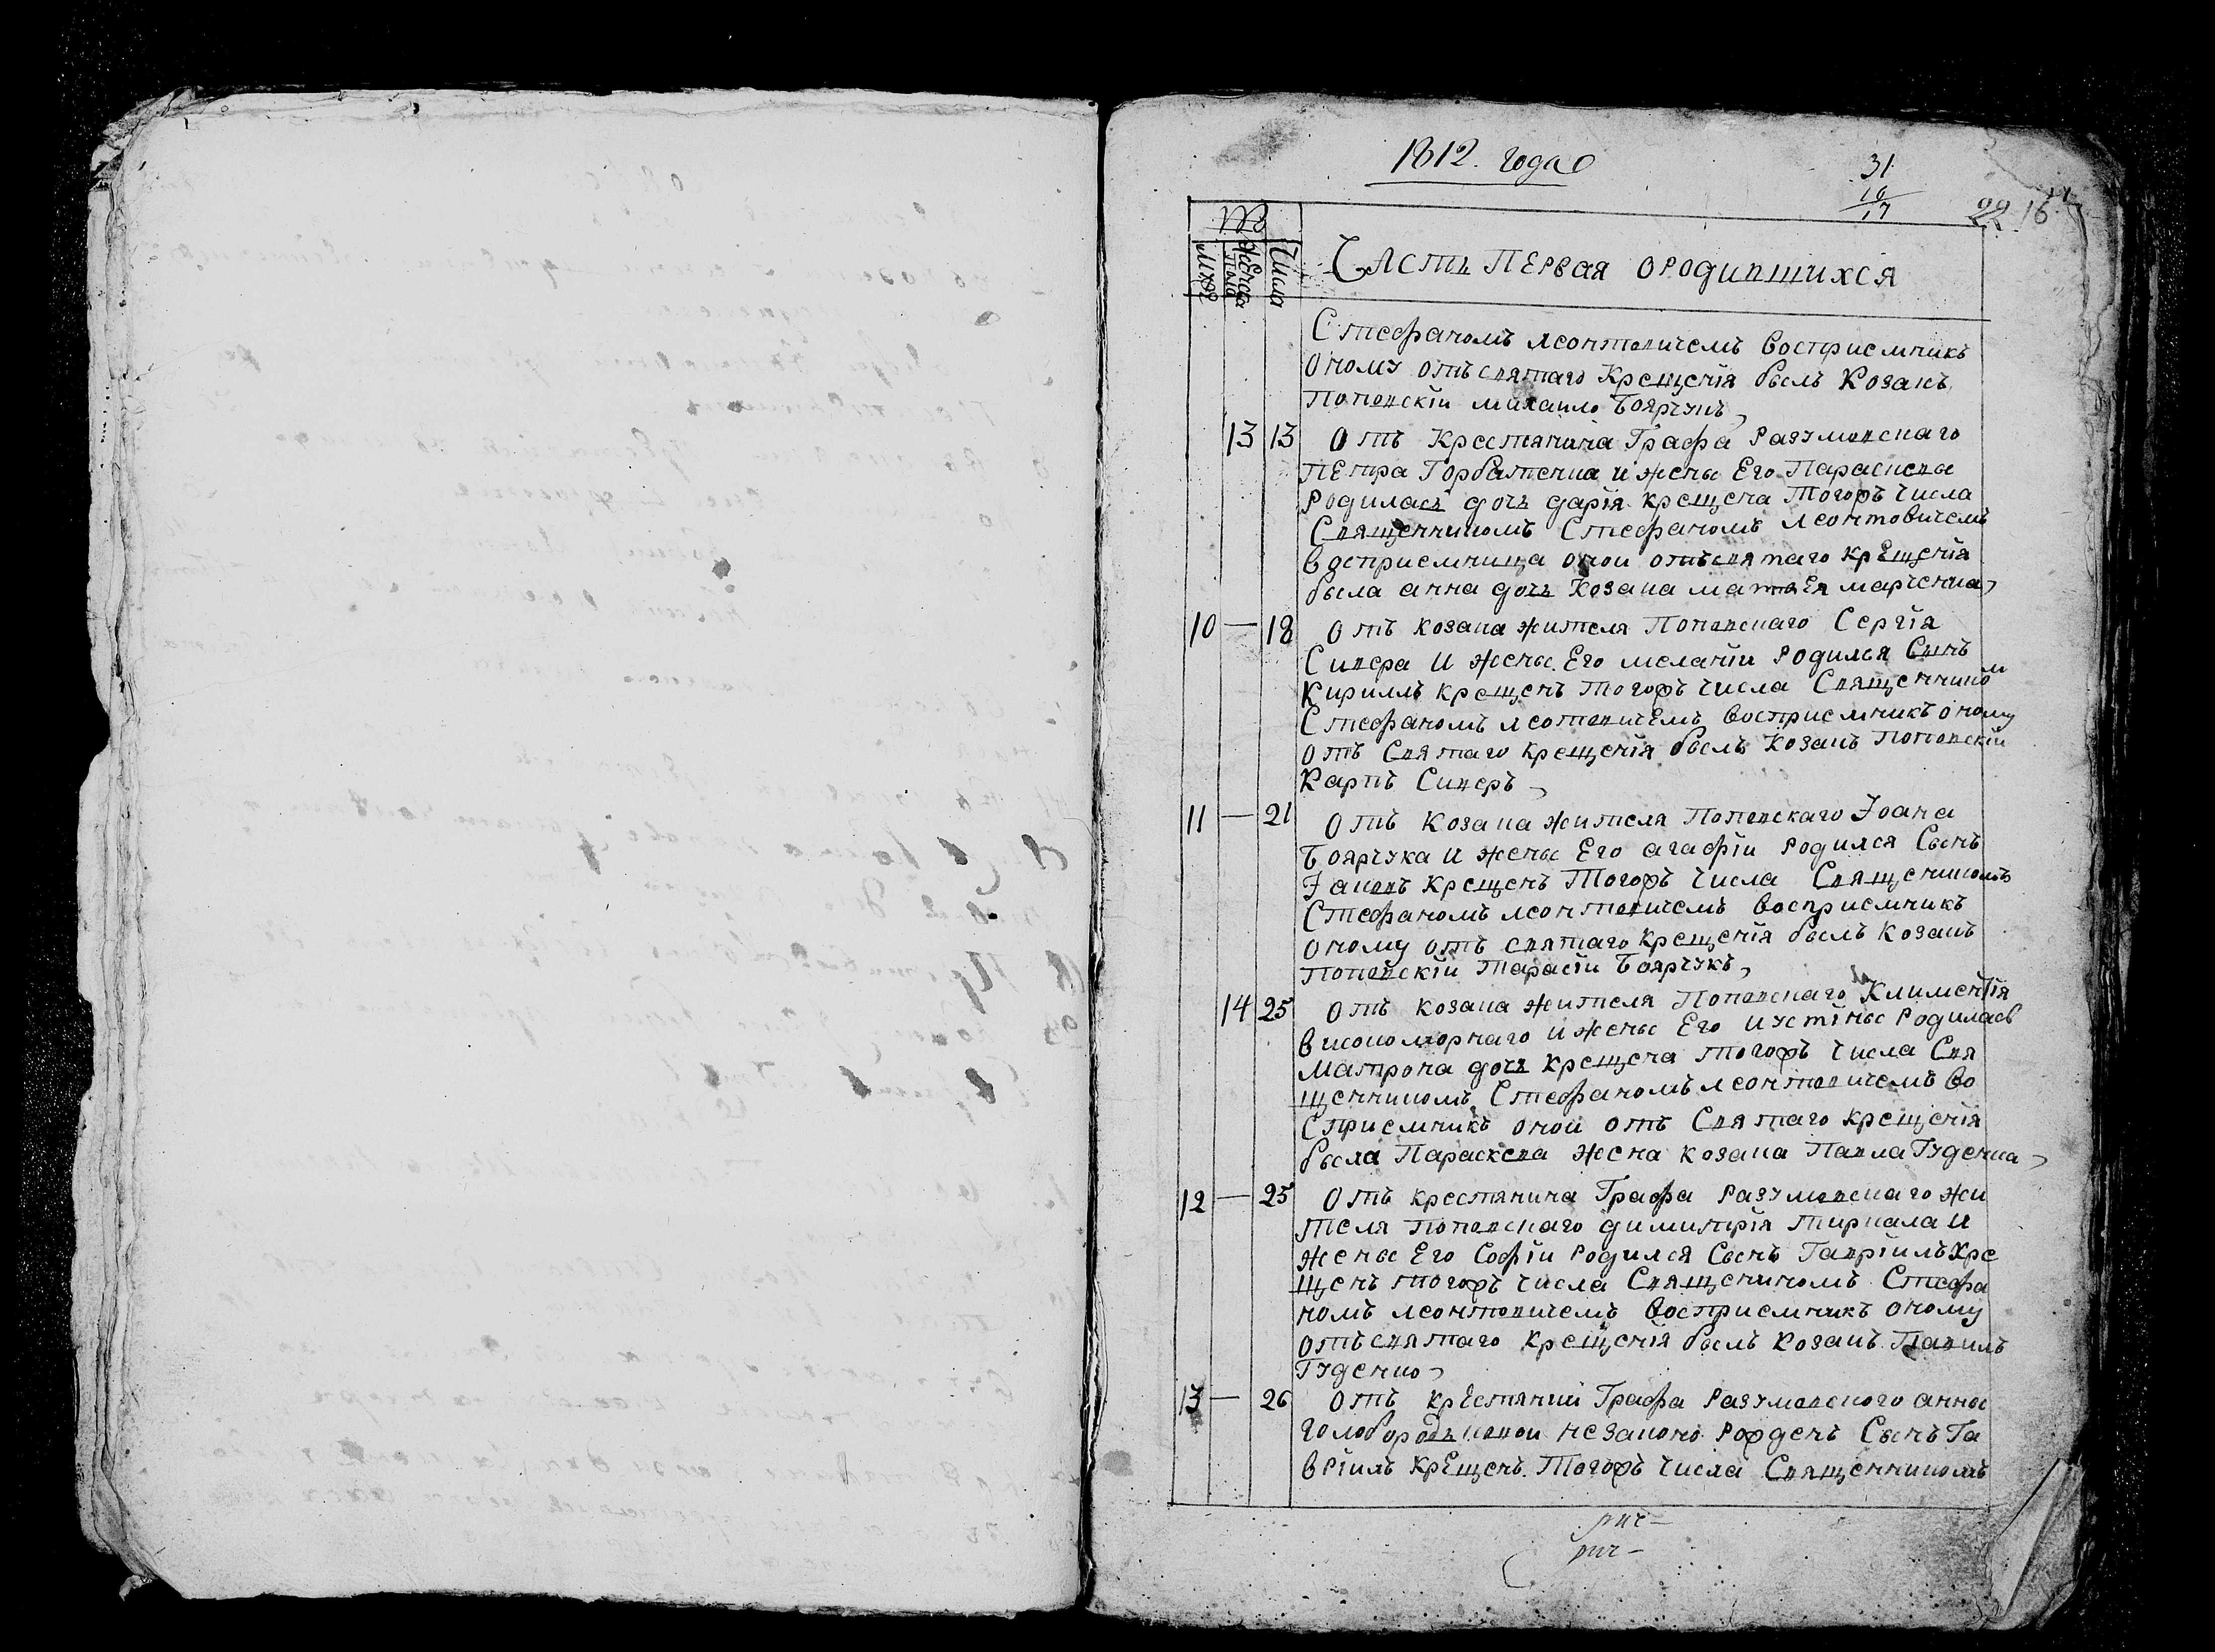 1812. года
31
16
17
22 16
№
Мужеска
Женска
Пола
Числа
Часть Первая ородившихся
Стефаномъ леонтовичемъ восприемникъ
Оному отъ святаго Крещенія былъ Козакъ
Поповскій михаило Боярчукъ
13 13 Отъ Крестянина Графа Разумовскаго
Петра Горбатенка и жены Его Параскевы
Родиласъ дочь дарія крещена Тогожъ числа
Священникомъ Стефаномъ леонтовичемъ
восприемница оной отъ святаго крещенія
была анна дочь Козака матвЕя марченка
10 — 18 Отъ козака жителя Поповскаго Сергія
Сивера и жены Его меланіи Родился Сынъ
Кириллъ крещенъ Тогожъ числа Священником
Стефаномъ леотовичемъ восприемникъ оному
отъ Святаго крещенія былъ Козакъ Поповскій
Карпъ Сиверъ
11 — 21 Отъ козака жителя Поповскаго Іоана
Боярчука и жены Его агафіи Родился Сынъ
Іаковъ крещенъ Тогожъ числа Священикомъ
Стефаномъ леонтовичемъ восприемникъ
оному отъ святаго крещенія былъ козакъ
Поповскій Тарасій Боярчукъ
14 25 Отъ козака жителя Поповскаго Климентія
високоморнаго и жены Его иустіны Родилась
Матрона дочь крещена тогожъ числа Свя
щенникомъ Стефаномъ леонтовичемъ во
сприемникъ оной отъ Святаго крещенія
была Параскева жена козака Павла Гуденка
12 — 25 Отъ крестянина Графа Разумовскаго жи
теля поповскаго димитрія тиркала и
жены Его Софіи Родился Сынъ Гавріилъ кре
щенъ тогожъ числа Священикомъ Стефа
номъ леонтовичемъ восприемникъ оному
отъ святаго крещенія былъ козакъ Павилъ
Гуденко
13 — 26 Отъ крЕстянки Графа Разумовского анны
голобородьковой незаконо рожденъ Сынъ Га
вріилъ крЕщенъ Тогожъ числа Священникомъ